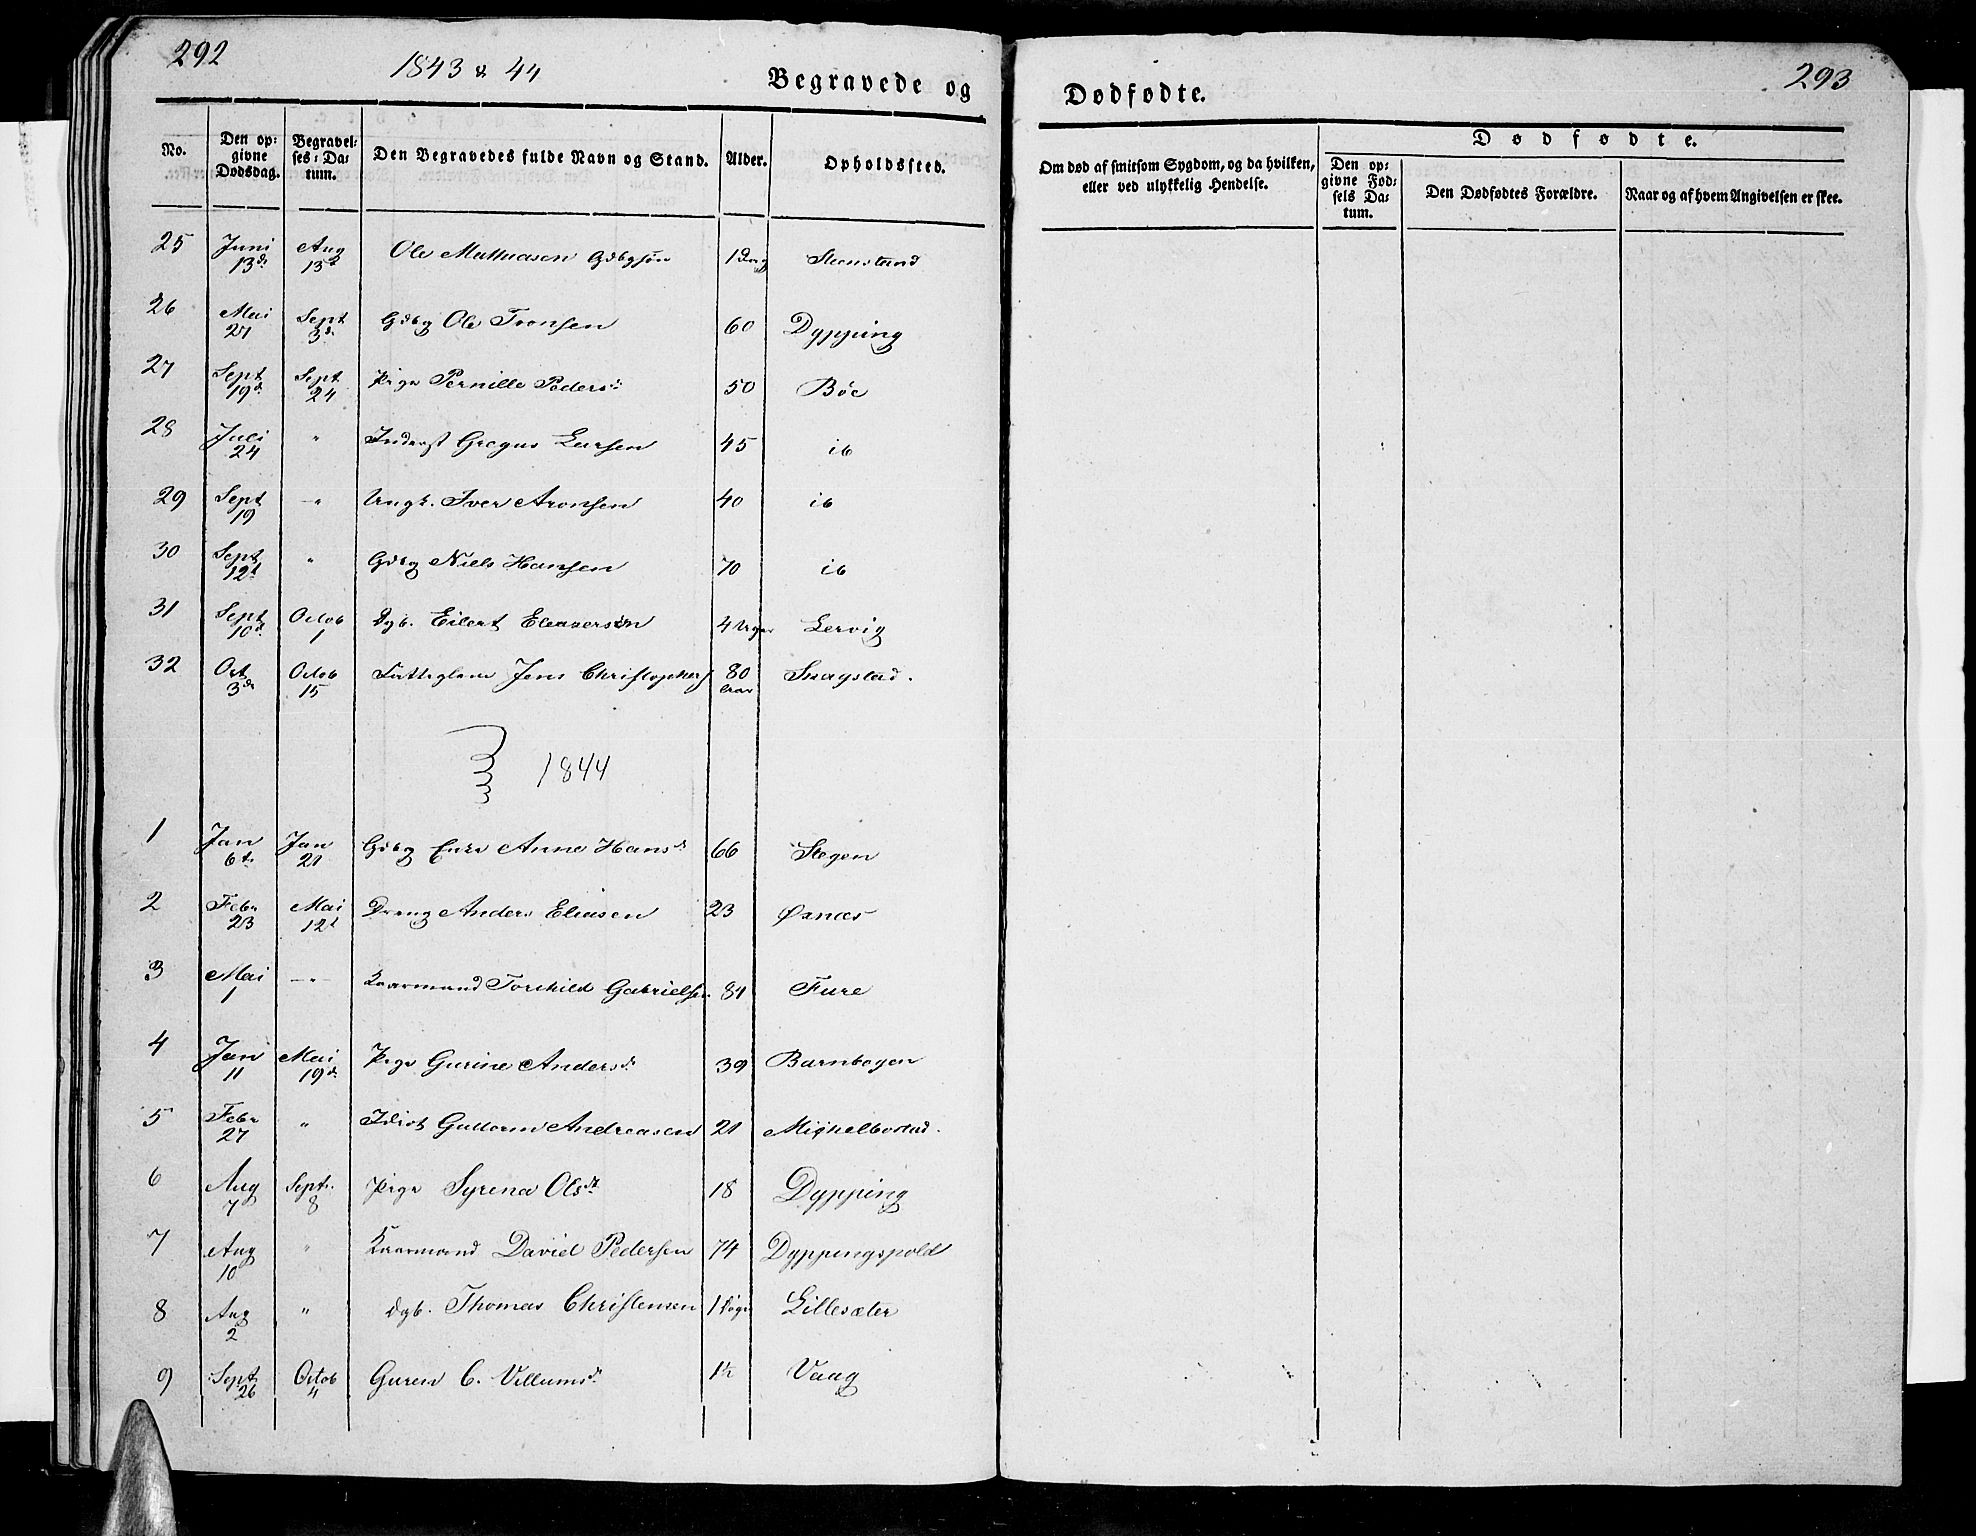 292
1843 & 44
Begravede og
No.
Den opgivne Dødsdag.
Begravelses-Datum.
Den Begravedes fulde Navn og Stand.
Alder.
Opholdssted.
25 Juni 13de Aug 13de Ole Mathiasen Gdbgsøn 1 Dag
26 Mai 27 Sept 3de Gdbg Ole Tronsen 60 Dypping
27 Sept 19de Sept 24 Pige Pernille Pedersd. 50 Bøe
28 Juli 24 " Inderst Gregus Larsen 45 ib
29 Sept 19 —" Ungk. Iver Aronsen 40 ib
30 Sept 12t " Gdbg Niels Hansen 70 ib
31 Sept 10d. Octob 1 Dgb. Eilert Eleasersen 4 Uger Lervig
32 Oct 3de Octob 15 Fattiglem Jens Christophers 80 Aar Snagstad.
1844
1 Jan 6te Jan 21 Gdbg Enke Anne Hansd. 66 Stegen
2 Febr 23 Mai 12t Dreng Anders Eliasen 23 Øxnæs
3 Mai 1 —"— Kaarmand Torchild Gabrielsen 81 Fure
4 Jan 11 Mai 19de Pige Gurine Andersd. 39 Barnbogen
5 Febr 27 " Idiot Guttorm Andreasen 21 Michelbostad.
6 Aug 7d Sept. 8 Pige Syrena Olsdt 18 Dypping
7 Aug 10 " Kaarmand David Pedersen 74 Dyppingspold
8 Aug 2 " dgb. Thomas Christensen 1 Døgn Lillesæter
9 Sept 26 Octob 4 Guren C. Villumsd. 1½ Vaag
293
Dødfødte.
Om død af smitsom Sygdom, og da hvilken,
eller ved ulykkelig Hendelse.
Dødfødte.
Den opgivne Fødsels Datum.
Den Dødfødtes Forældre.
Naar og af hvem Angivelsen er skee.